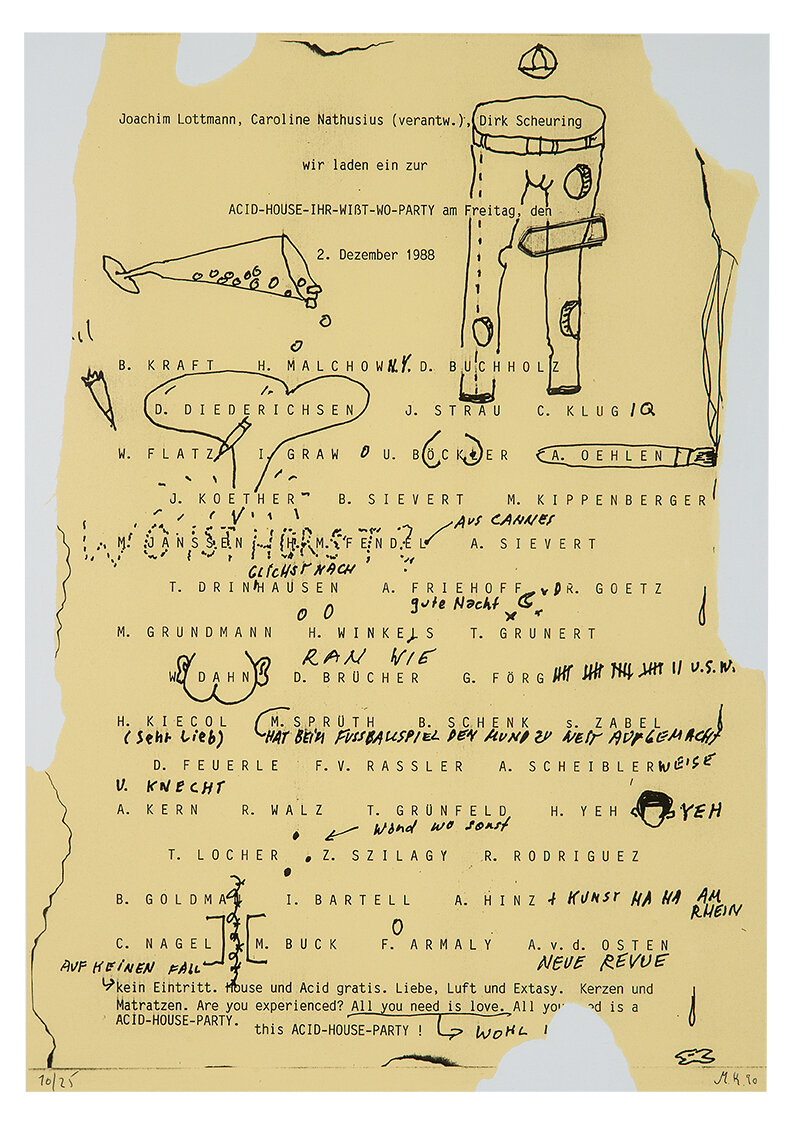 Joachim Lottmann, Caroline Nathusius (verantw.), Dirk Scheuring
wir laden ein zur
ACID-HOUSE-IHR-WIßT-WO-PARTY am Freitag, den
2. Dezember 1988
B. KRAFT H. MALCHOW N.Y. D. BUCHHOLZ
D. DIEDERICHSEN J. STRAU C. KLUG IQ
W. FLATZ I. GRAW O U. BÖCKLER A. OEHLEN
J. KOETHER B. SIEVERT M. KIPPENBERGER
AUS CANNES
WO IST HORST?
M. JANSSEN H.M. FENDEL A. SIEVERT
GLICHST NACH
T. DRINHAUSEN A. FRIEHOFF DR. GOETZ
gute Nacht
M. GRUNDMANN H. WINKELS T. GRUNERT
RAN WIE
W. DAHN D. BRÜCHER G. FÖRG U.S.W.
H. KIECOL M. SPRÜTH B. SCHENK s. ZABEL
(sehr Lieb) HAT BEIM FUSSBALLSPIEL DEN MUND ZU WEIT AUFGEMACHT
D. FEUERLE F.V. RASSLER A. SCHEIBLER WEISE
U. KNECHT
A. KERN R. WALZ T. GRÜNFELD H. YEH YEH
Wand wo sonst
T. LOCHER Z. SZILAGY R. RODRIGUEZ
B. GOLDMA I. BARTELL A. HINZ + KUNST HA HA AM
RHEIN
C. NAGEL M. BUCK F. ARMALY A.v.d. OSTEN
AUF KEINEN FALL NEUE REVUE
kein Eintritt. House und Acid gratis. Liebe, Luft und Extasy. Kerzen und
Matratzen. Are you experienced? All you need is love. All you ed is a
ACID-HOUSE-PARTY.
this ACID-HOUSE-PARTY ! WOHL !
10/25 M.K. 90